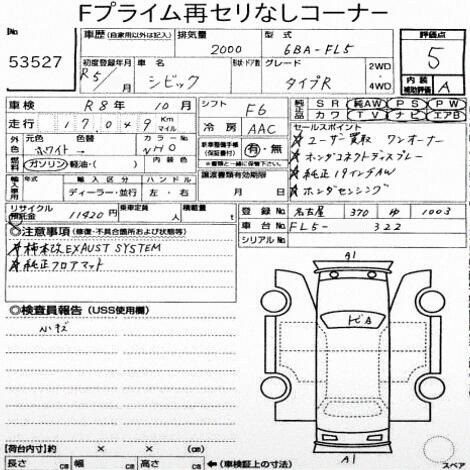 Fプライム再セリなしコーナー
53527
車歴 (自家用以外は記入) 排気量 2000 型式 6BA-FL5
初度登録年月 R5/ 月 車名 シビック 形状・ドア数 グレード タイプR 2WD・4WD
評価点 5
内装補助評価 A
車検 R8年 10月 シフト F6
走行 17,049 Km マイル 冷房 AAC
外色 元色 ホワイト→ 色替 カラーNo NHO
燃料 ガソリン 軽油・( ) 内装色
新車整備手帳(保証書付) 有・無
※書類と一緒に保管して下さい
純正品 SR 純AW PS PW
カワ TV ナビ エアB
セールスポイント
★ユーザー買取 ワンオーナー
★ホンダコネクトディスプレー
★純正19インチAW
★ホンダセンシング
輸入車専用 年式 輸入区分 ディーラー・並行 ハンドル 左・右
譲渡書類有効期限 月 日
リサイクル預託金 11420円 乗車定員 人 積載量 t
登録No. 名古屋 370 ゆ 1003
車台No. FL5- 322
シリアルNo.
◎注意事項 (修復・不具合箇所および状態等)
★柿本改 EXAUST SYSTEM
★純正フロアマット
◎検査員報告 (USS使用欄)
小キズ
A1
トビA
A1
スペア
【荷台内寸】約 × × (cm)
長さ cm 幅 cm 高さ cm ←(車検証上の寸法)